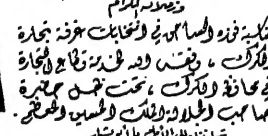 وزملائه الكرام
بمناسبة فوزه الساحق في انتخابات غرفة تجارة
الكرك ، وفقهم الله لخدمة قطاع التجارة
في محافظة الكرك ، تحت ظل حضرة
صاحب الجلالة الملك الحسين المعظم